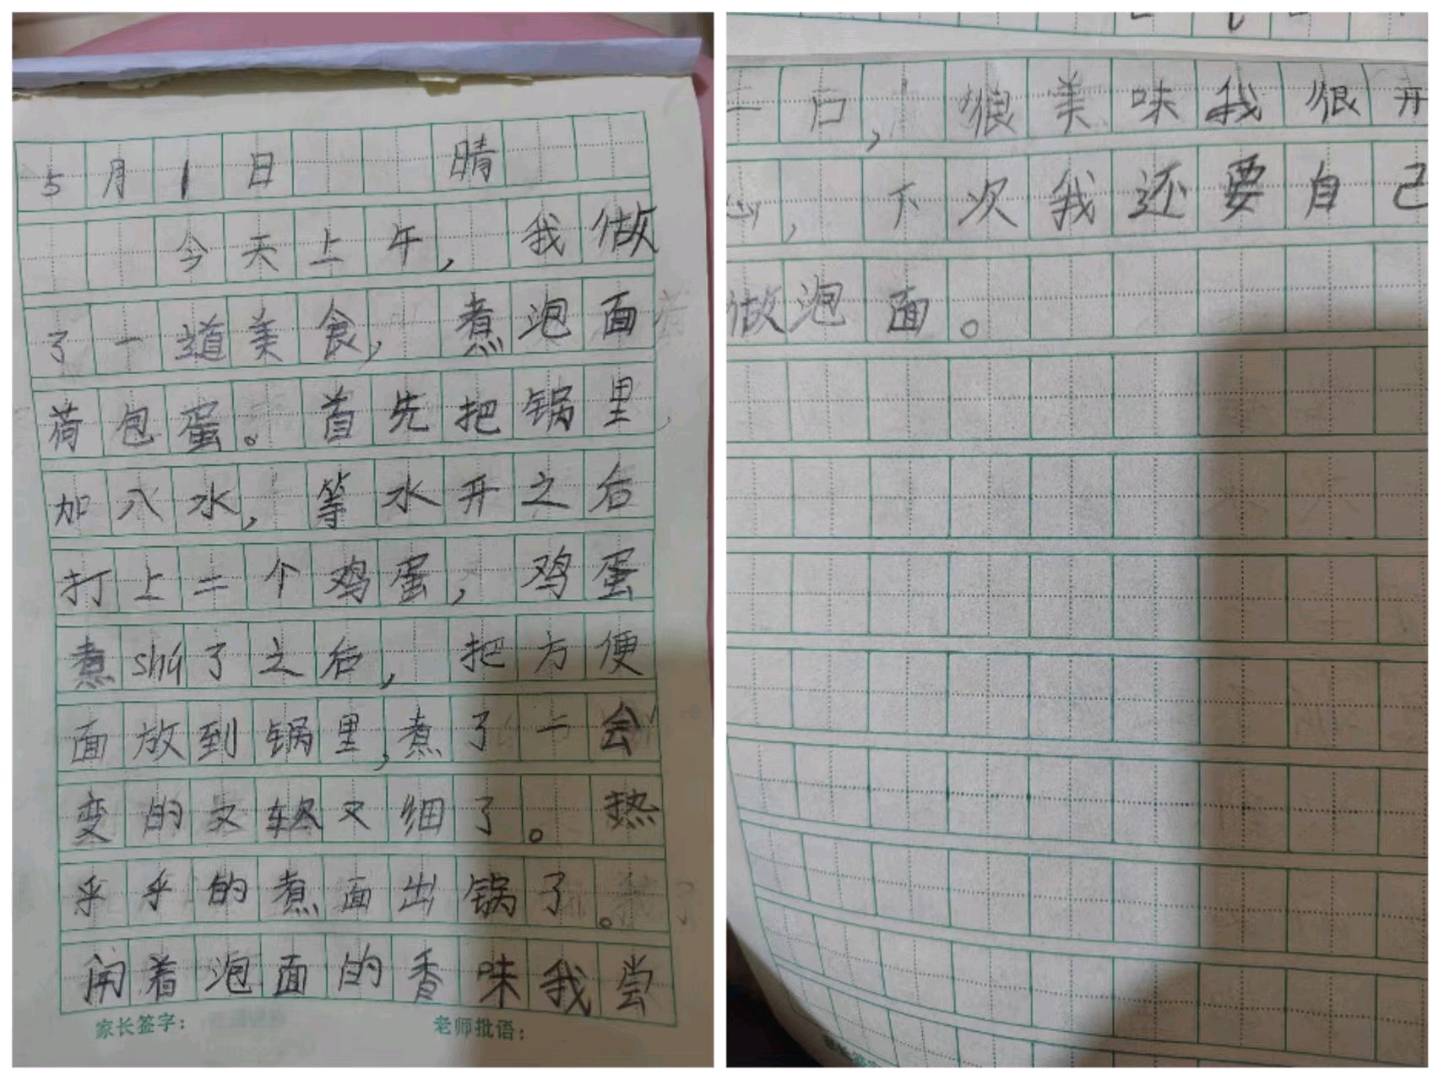 5月1日 晴
今天上午,我做
了一道美食,煮泡面
荷包蛋。首先把锅里
加入水,等水开之后
打上二个鸡蛋,鸡蛋
煮shú了之后,把方便
面放到锅里,煮了一会
变的又轻又细了。热
乎乎的煮面出锅了。
闻着泡面的香味我尝
家长签字: 老师批语:
一口,很美味我很开
心,下次我还要自己
做泡面。